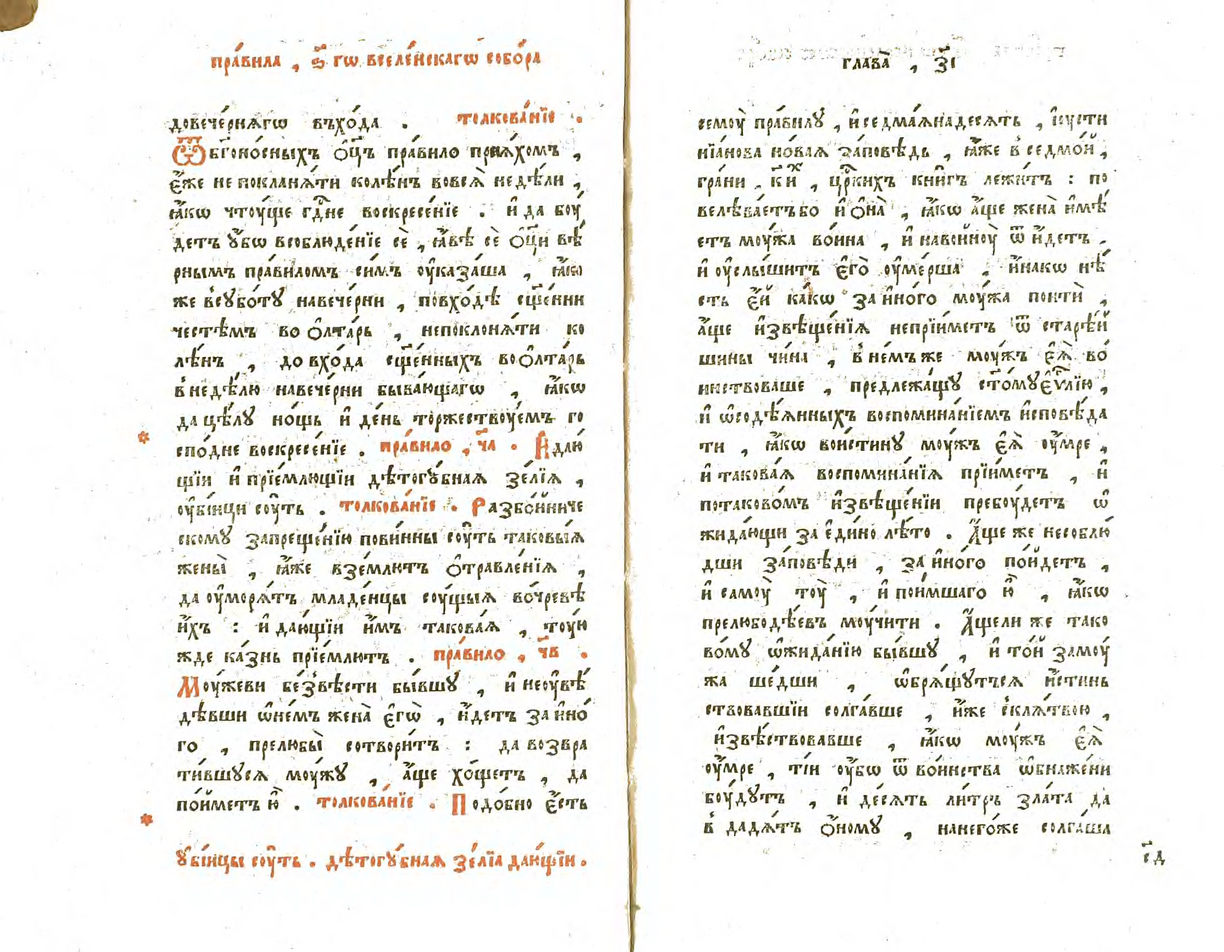 пра́вила , ѕ҃ гѡ вселе́нскагѡ собо́ра
довече́рнягѡ въхо́да . толкова́нїе .
Ѿ бг҃оно́сныхъ ѻ҆ц҃ъ пра́вило прїя́хомъ ,
є҆́же непокланя́ти колѣ́нъ вовсѧ̀ недѣ́ли ,
ꙗ҆́кѡ чтꙋ́ще гдⷭ҇не воскресе́нїе . и҆ да бꙋ́
детъ ᲂу҆́бѡ всоблюде́нїе сѐ , ꙗ҆́вѣ сѐ ѻ҆ц҃и вѣ́
рнымъ пра́вилом си́мъ ᲂу҆каза́ша , ꙗ҆́ко
же всꙋбо́тꙋ навече́рни , повхо́дѣ сщ҃е́нни
честѣ́мъ во ѻ҆лта́рь , непоклоня́ти ко
лѣ́нъ , до вхо́да сщ҃е́нныхъ воѻ҆лта́рь
в недѣ́лю навече́рни быва́ющагѡ , ꙗ҆́кѡ
да цѣ́лꙋ но́щь и҆ де́нь торжествꙋ́емъ го
спо́дне воскресе́нїе . пра́вило , ч҃а . Даю́
щїи и҆ прїе́млющїи дѣтогꙋ́бная ѕе́лїѧ ,
ᲂу҆бі́йци сꙋ́ть . толкова́нїе . Разбо́йниче
скомꙋ запреще́нїю пови́нны сꙋ́ть таковы́ѧ
жены̀ , ꙗ҆́же взе́млютъ ѻ҆травле́нїѧ ,
да ᲂу҆моря́тъ младе́нцы сꙋ́щыѧ вочре́вѣ
и҆́хъ : и҆ даю́щїи и҆̀мъ такова́ѧ , тꙋ́ю
жде ка́знь прїе́млютъ . пра́вило , ч҃в .
Мꙋ́жеви безвѣ́сти бы́вшꙋ , и҆ неᲂувѣ́
дѣвши ѡ҆не́мъ жена̀ є҆гѡ̀ , и҆́детъ за и҆но́
го , прелюбы̀ сотвори́тъ : да возвра
ти́вшꙋсѧ мꙋ́жꙋ , а҆́ще хо́щетъ , да
по́йметъ ю҆̀ . толкова́нїе . Подо́бно є҆́сть
ᲂу҆бі́йцы сꙋ́ть . дѣтогꙋ́бная ѕе́лїа даю́щїи .
глава̀ , з҃і
семꙋ̀ пра́вилꙋ , и҆ седмаѧна́десѧть , і҆ꙋсти
нїа́нова но́ваѧ за́повѣдь , ꙗ҆́же в седмо́й ,
гра́ни , к҃и , цр҃кихъ кни́гъ лежи́тъ : по
велѣва́етъ бо и҆ ѻ҆на̀ , ꙗ҆́кѡ а҆́ще жена̀ и҆мѣ́
етъ мꙋ́жа во́ина , и҆ навойнꙋ̀ ѿи҆́детъ ,
и҆ ᲂу҆слы́шитъ є҆го̀ ᲂу҆ме́рша , и҆на́кѡ нѣ́
сть є҆́й ка́кѡ за и҆но́го мꙋ́жа понтѝ ,
а҆́ще и҆звѣще́нїѧ непрїи́метъ ѿ старѣ́й
шины чи́на , в не́мъ же мꙋ́жъ є҆ѧ̀ во́
инствоваше , предлежа́щꙋ ст҃о́мꙋ є҆ѵⷢ҇лїю ,
и҆ ѡ҆содѣ́ѧнныхъ воспомина́нїемъ и҆сповѣ́да
ти , ꙗ҆́кѡ вои́стинꙋ мꙋ́жъ є҆ѧ̀ ᲂу҆́мре ,
и҆ такова́ѧ воспомина́нїѧ прїи́метъ , и҆
потаково́мъ и҆звѣще́нїи пребꙋ́детъ ѡ҆
жида́ющи за є҆ди́но лѣ́то . А҆́ще же несоблю́
дши за́повѣди , за и҆но́го по́йдетъ ,
и҆ самꙋ̀ тꙋ̀ , и҆ пои́мшаго ю҆̀ , ꙗ҆́кѡ
прелюбодѣ́евъ мꙋ́чити . А҆́щели же тако
во́мꙋ ѡ҆жида́нїю бы́вшꙋ , и҆ то́й замꙋ́
жа ше́дши , ѡ҆брѧ́щꙋтьсѧ и҆́стинь
ствовавшїи солга́вше , и҆́же склѧ́твою ,
и҆звѣ́ствовавше , ꙗ҆́кѡ мꙋ́жъ є҆ѧ̀
ᲂу҆́мре , ті́и ᲂу҆́бѡ ѿ во́инства ѡ҆бнаже́ни
бꙋ́дꙋтъ , и҆ де́сѧть ли́тръ зла́та да
в дадѧ́тъ ѻ҆номꙋ̀ , нанего́же солга́ша